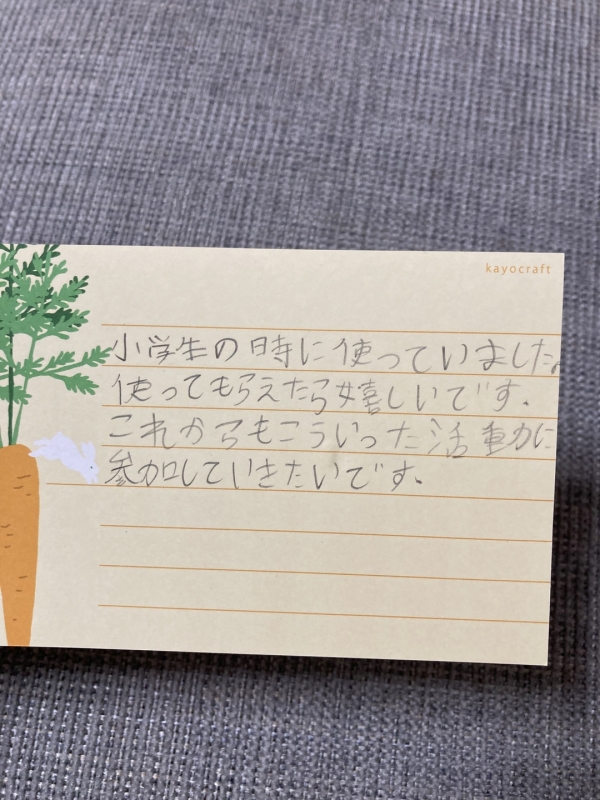 kayocraft
小学生の時に使っていました。
使ってもらえたら嬉しいです。
これからもこういった活動に
参加していきたいです。